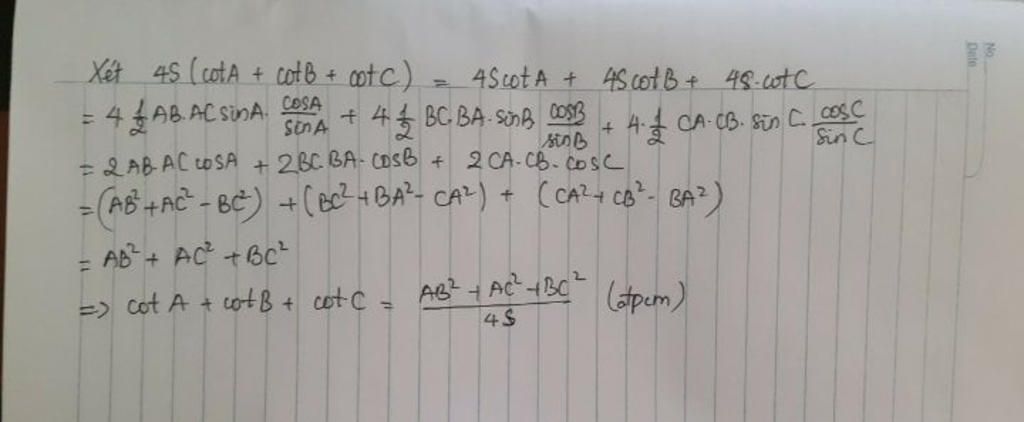 No
Date
Xét 4S (cotA + cotB + cotC) = 4ScotA + 4ScotB + 4S.cotC
= 4 1/2 AB.AC sinA. cosA/sinA + 4 1/2 BC.BA.sinB cosB/sinB + 4.1/2 CA.CB.sin C. cosC/sin C
= 2AB.AC cosA + 2BC.BA.cosB + 2CA.CB.cosC
= (AB² + AC² - BC²) + (BC² + BA² - CA²) + (CA² + CB² - BA²)
= AB² + AC² + BC²
=> cot A + cotB + cotC = AB² + AC² + BC² / 4S (đpcm)